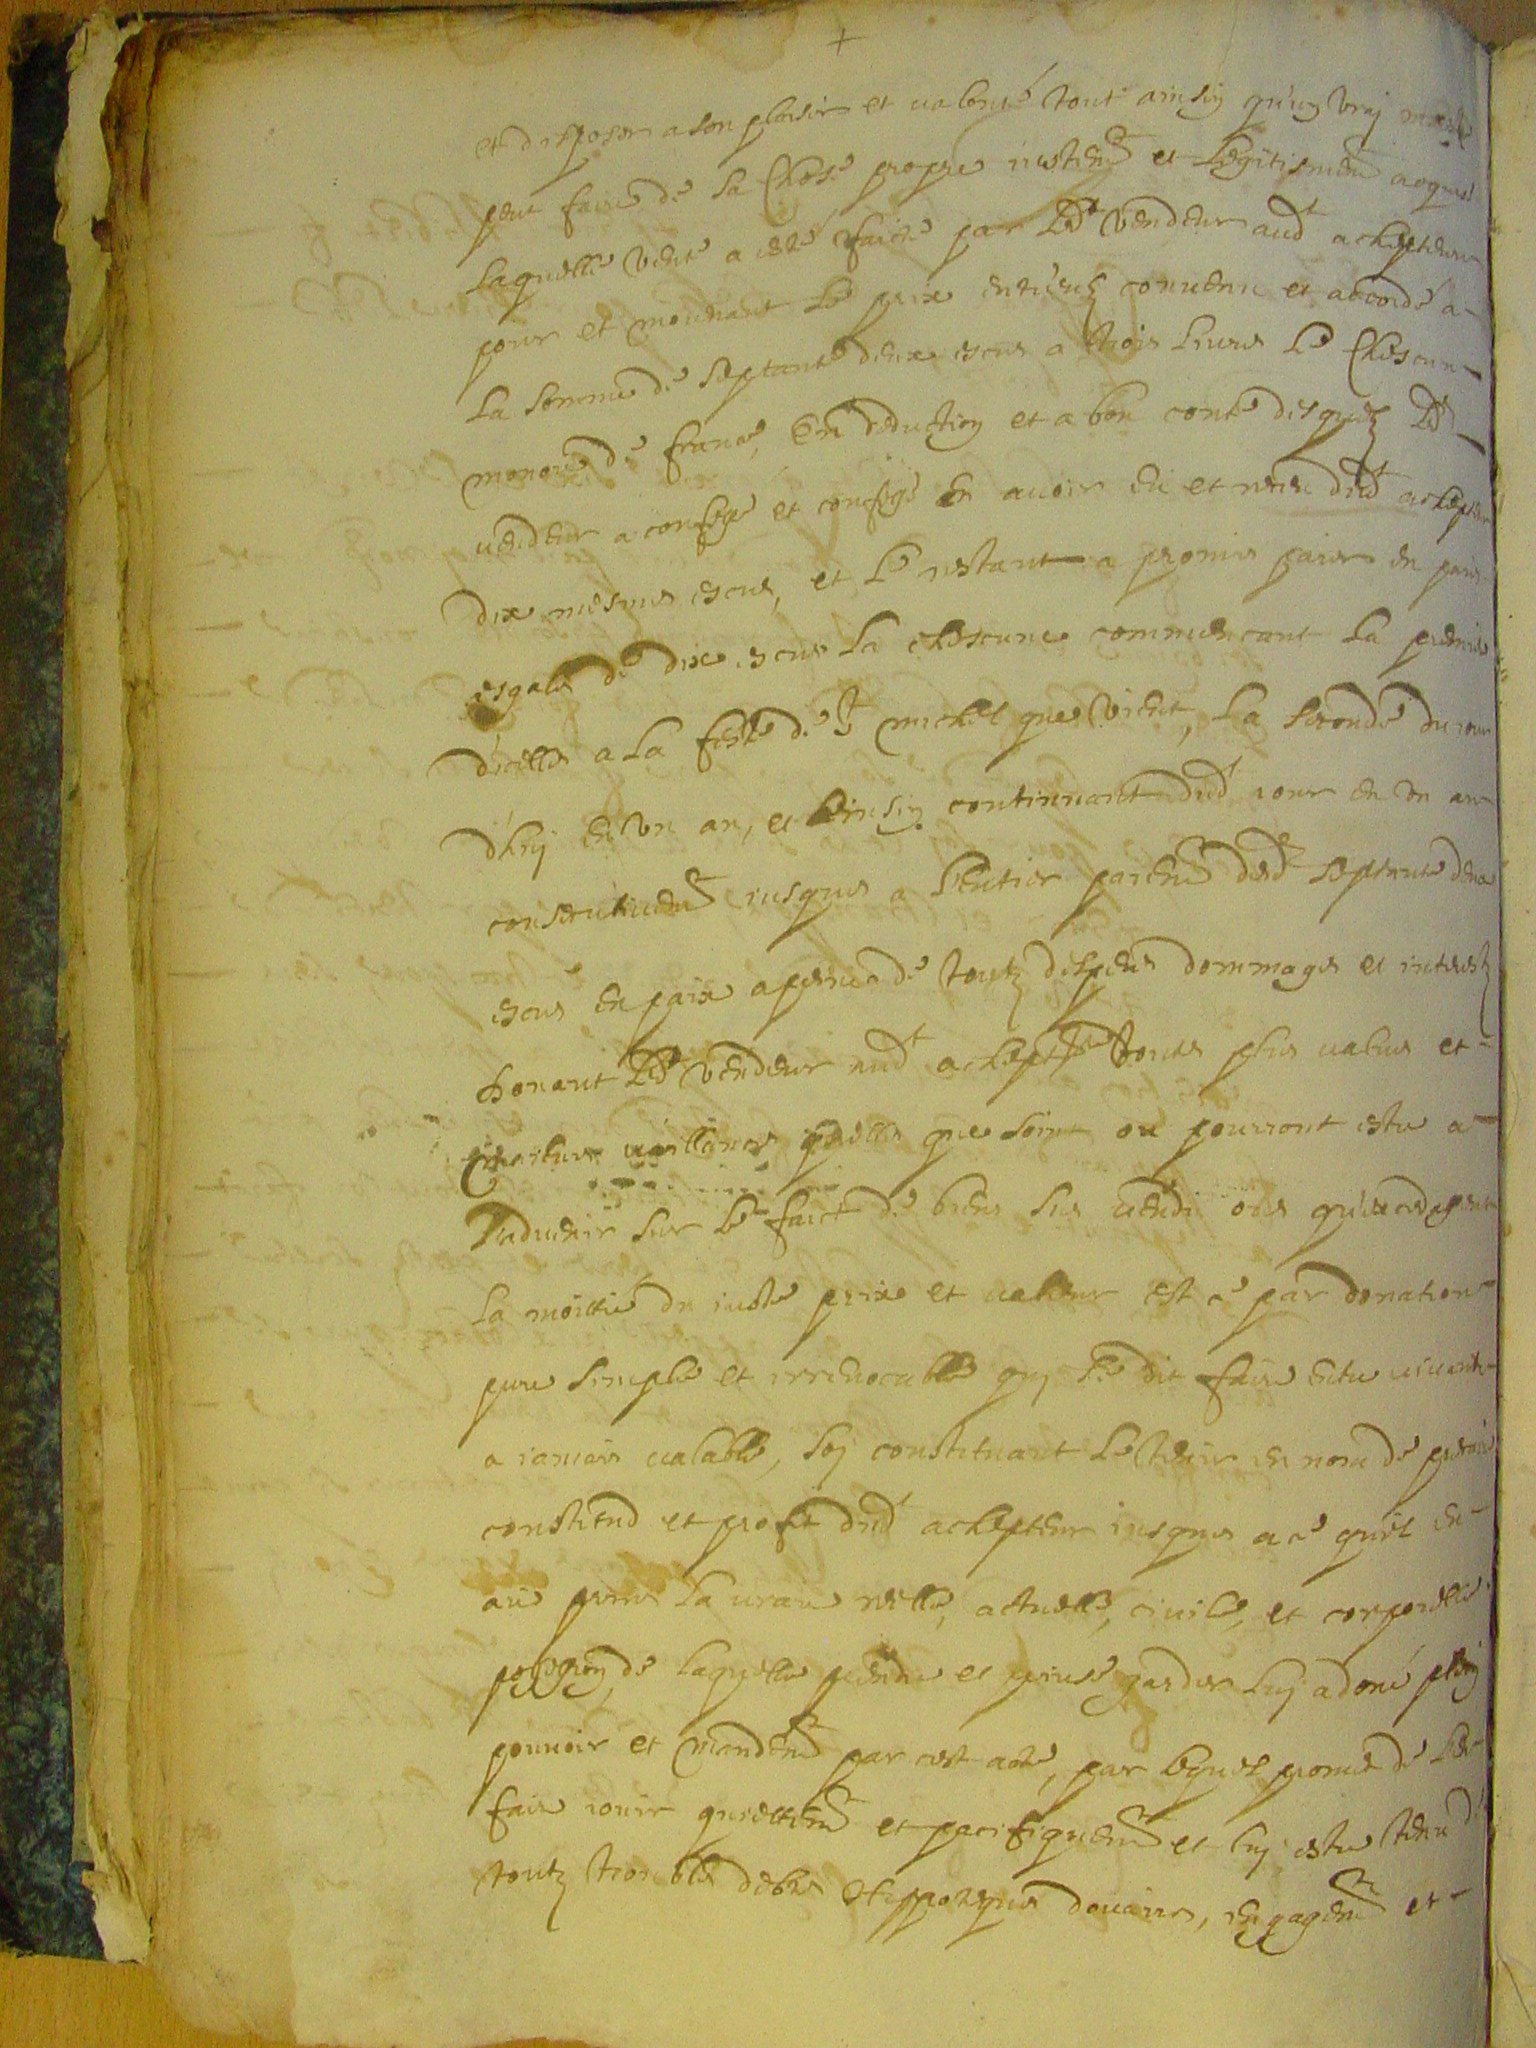 +
et disposer a son plaisir et valonté tout ainsin qu'ung vray
peut faire de sa chose propre iustemt et legitimemt aquise
laquelle vente a esté faicte par ledt vendeur audt achepteur
pour et moienant le prix entierz convenu et accordé a
la somme de septante deux escus a trois livres le chescun
monoie de france, en deduction et a bon conte desquelz led
vendeur a confessé et confesse en avoir eu et receu dudt achepteur
dix mesmes escus, et le restant a promis paier en paies
esgales de dix escus la chescune commencant la premiere
d'icelles a la feste de St michel que vient, la seconde du jour
d'huy en un an, et ainsin continuant dudt iour en un an
consecutivemt iusques a l'entier paiemt desdt septante deux
escus en paix a peine de toutz despens dommages et interestz
donant ledt vendeur audt achepteur toutes plus values et
meilleures vaillances quelles que soint ou pourront estre a
l'advenir sur le faict de biens sus vendu
la moittié du iuste prix et valleur est ce par donation
pure simple et irrevocable qui se dit faire entre vivants
a iamais valable, soy constituant le tenir en nom de precaire
constitud et profit dudt achepteur iusques a ce qu'il en
aie prins la vraie reelle, actuelle, civile, et corporelle
possession, de laquelle prendre et prinse garder luy a doné plein
pouvoir et mandemt par cest acte, par lequel promis de les
faire iouir quiettemt et pacifiquemt et luy estre tenu d
toutz troubles debtes Hippoteques douaires, engagemt et